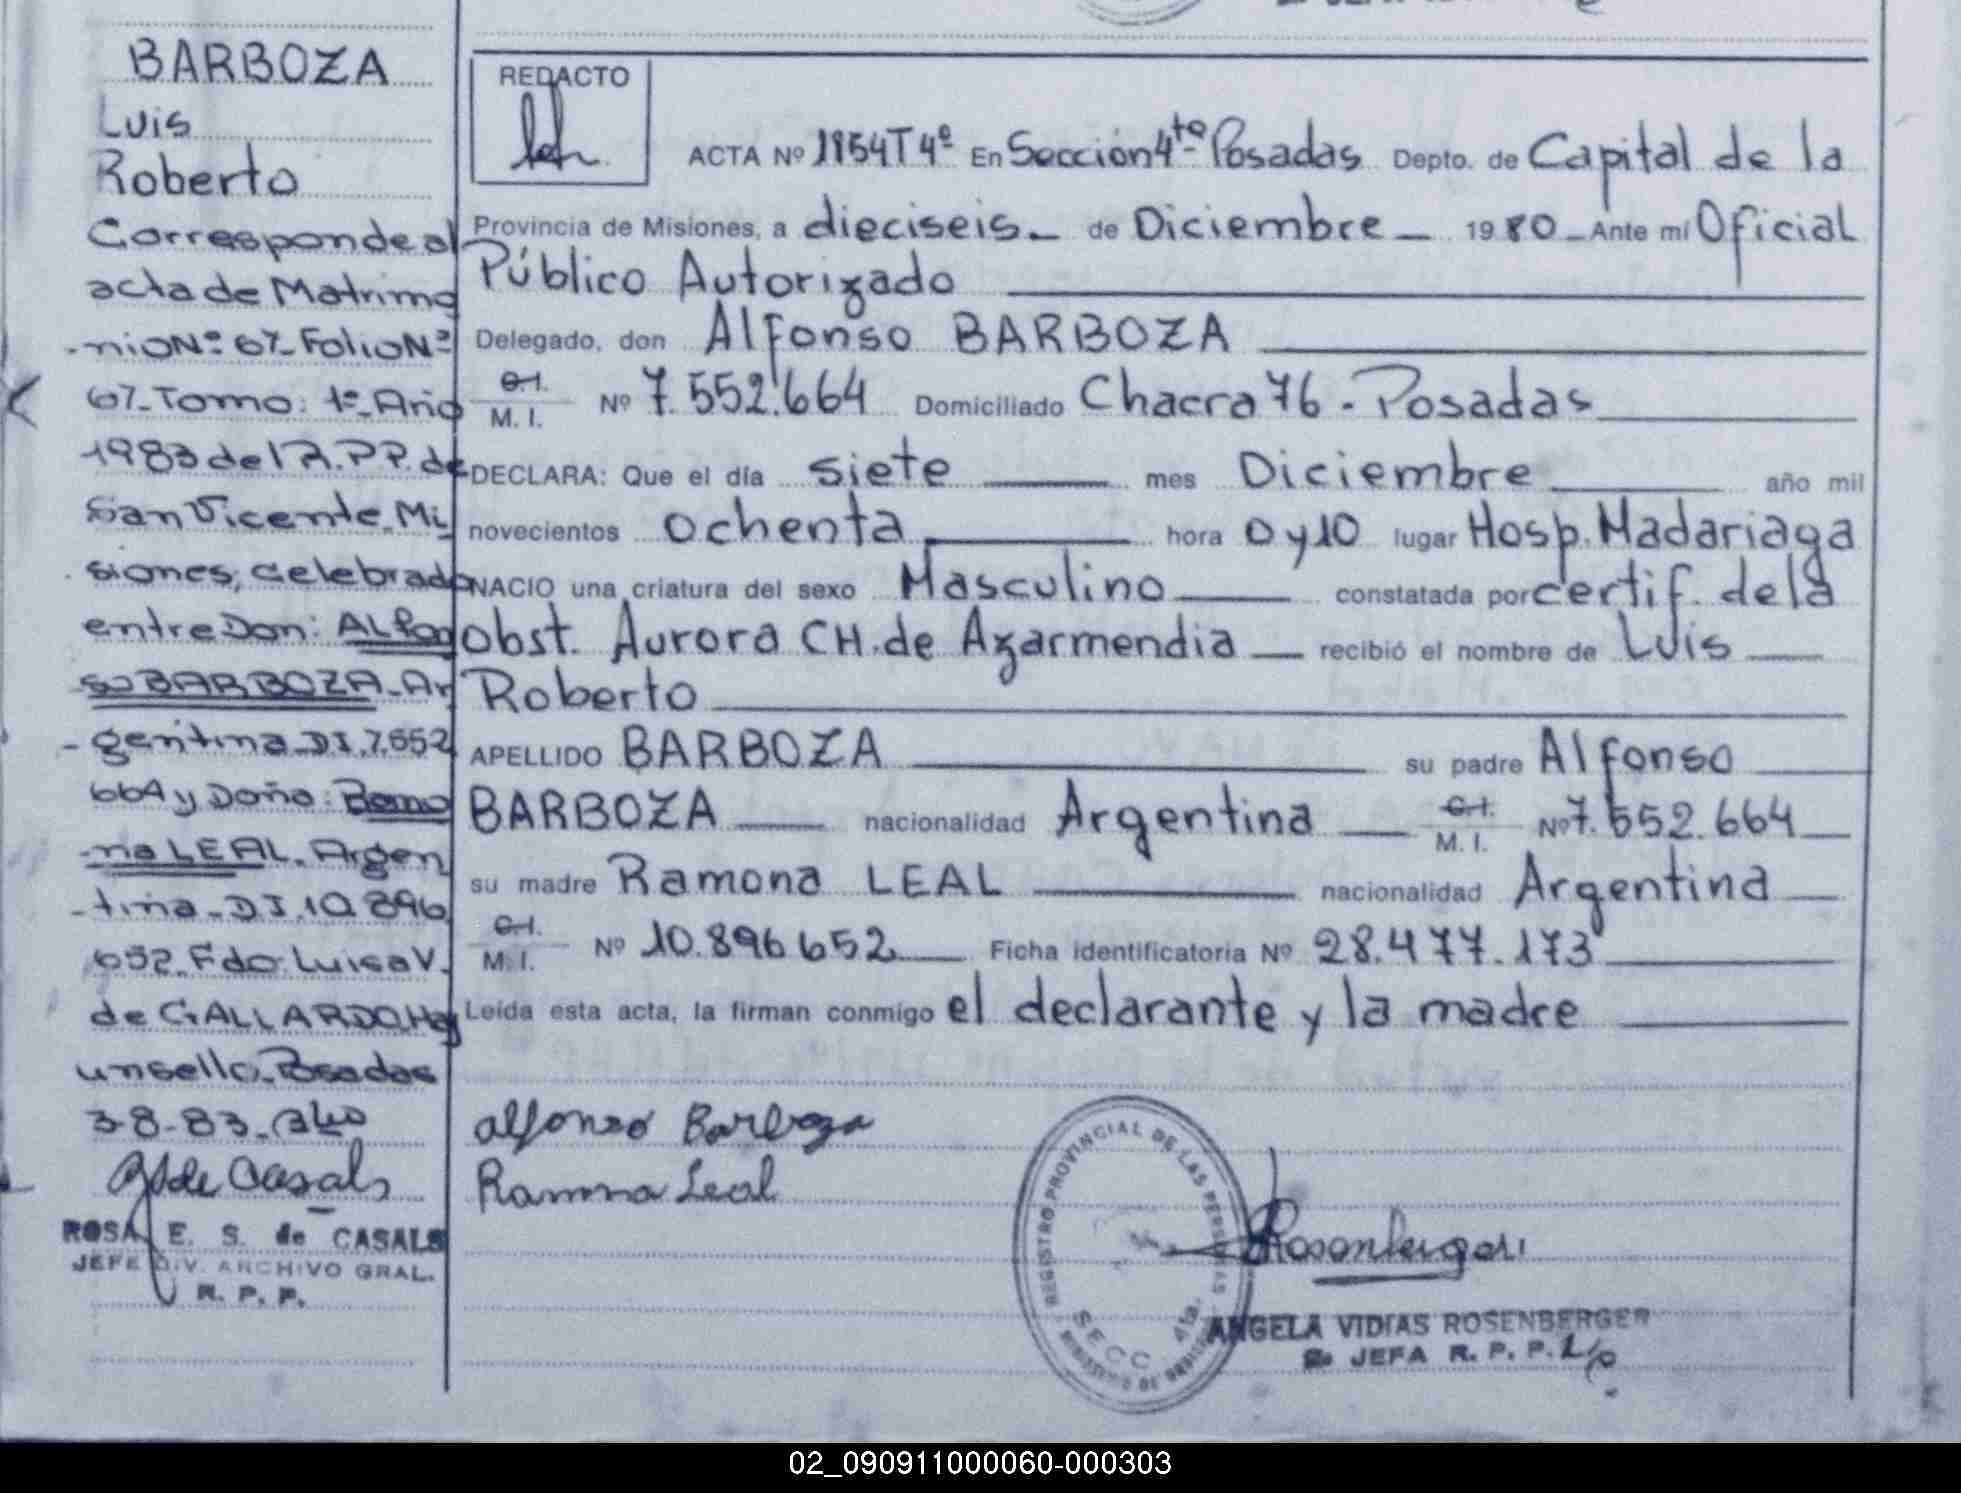 BARBOZA
Luis
Roberto
Corresponde al
acta de Matrimo
-nio Nº 67- Folio Nº
67- Tomo: 1º- Año
1983 del R.P.P. de
San Vicente, Mi
siones, celebrado
entre Don: Alfon
so BARBOZA- Ar
-gentina- DI. 7.552
664 y Doña: Ramo
-na LEAL. Argen
-tina- DI. 10.896
652. Fdo. Luisa V.
de GALLARDO. Hay
un sello. Posadas
3-8-83.
de Casals
ROSA E. S. de CASALS
JEFE DIV. ARCHIVO GRAL.
R. P. P.
REDACTO
ACTA Nº 1954T4º En Sección 4ta Posadas Depto. de Capital de la
Provincia de Misiones, a dieciseis- de Diciembre- 1980- Ante mí Oficial
Público Autorizado
Delegado, don Alfonso BARBOZA
C.I. M. I. Nº 7.552.664 Domiciliado Chacra 76 - Posadas
DECLARA: Que el día siete mes Diciembre año mil
novecientos ochenta hora 0 y 10 lugar Hosp. Madariaga
NACIO una criatura del sexo Masculino constatada por certif. de la
obst. Aurora CH. de Azarmendia recibió el nombre de Luis
Roberto
APELLIDO BARBOZA su padre Alfonso
BARBOZA nacionalidad Argentina C.I. M. I. Nº 7.552.664
su madre Ramona LEAL nacionalidad Argentina
C.I. M. I. Nº 10.896.652 Ficha identificatoria Nº 28.477.173
Leída esta acta, la firman conmigo el declarante y la madre
alfonso Barboza
Ramona Leal
REGISTRO PROVINCIAL DE LAS PERSONAS
SECC 4ta.
Rosenberger
ANGELA VIDIAS ROSENBERGER
JEFA R. P. P.
02_090911000060-000303